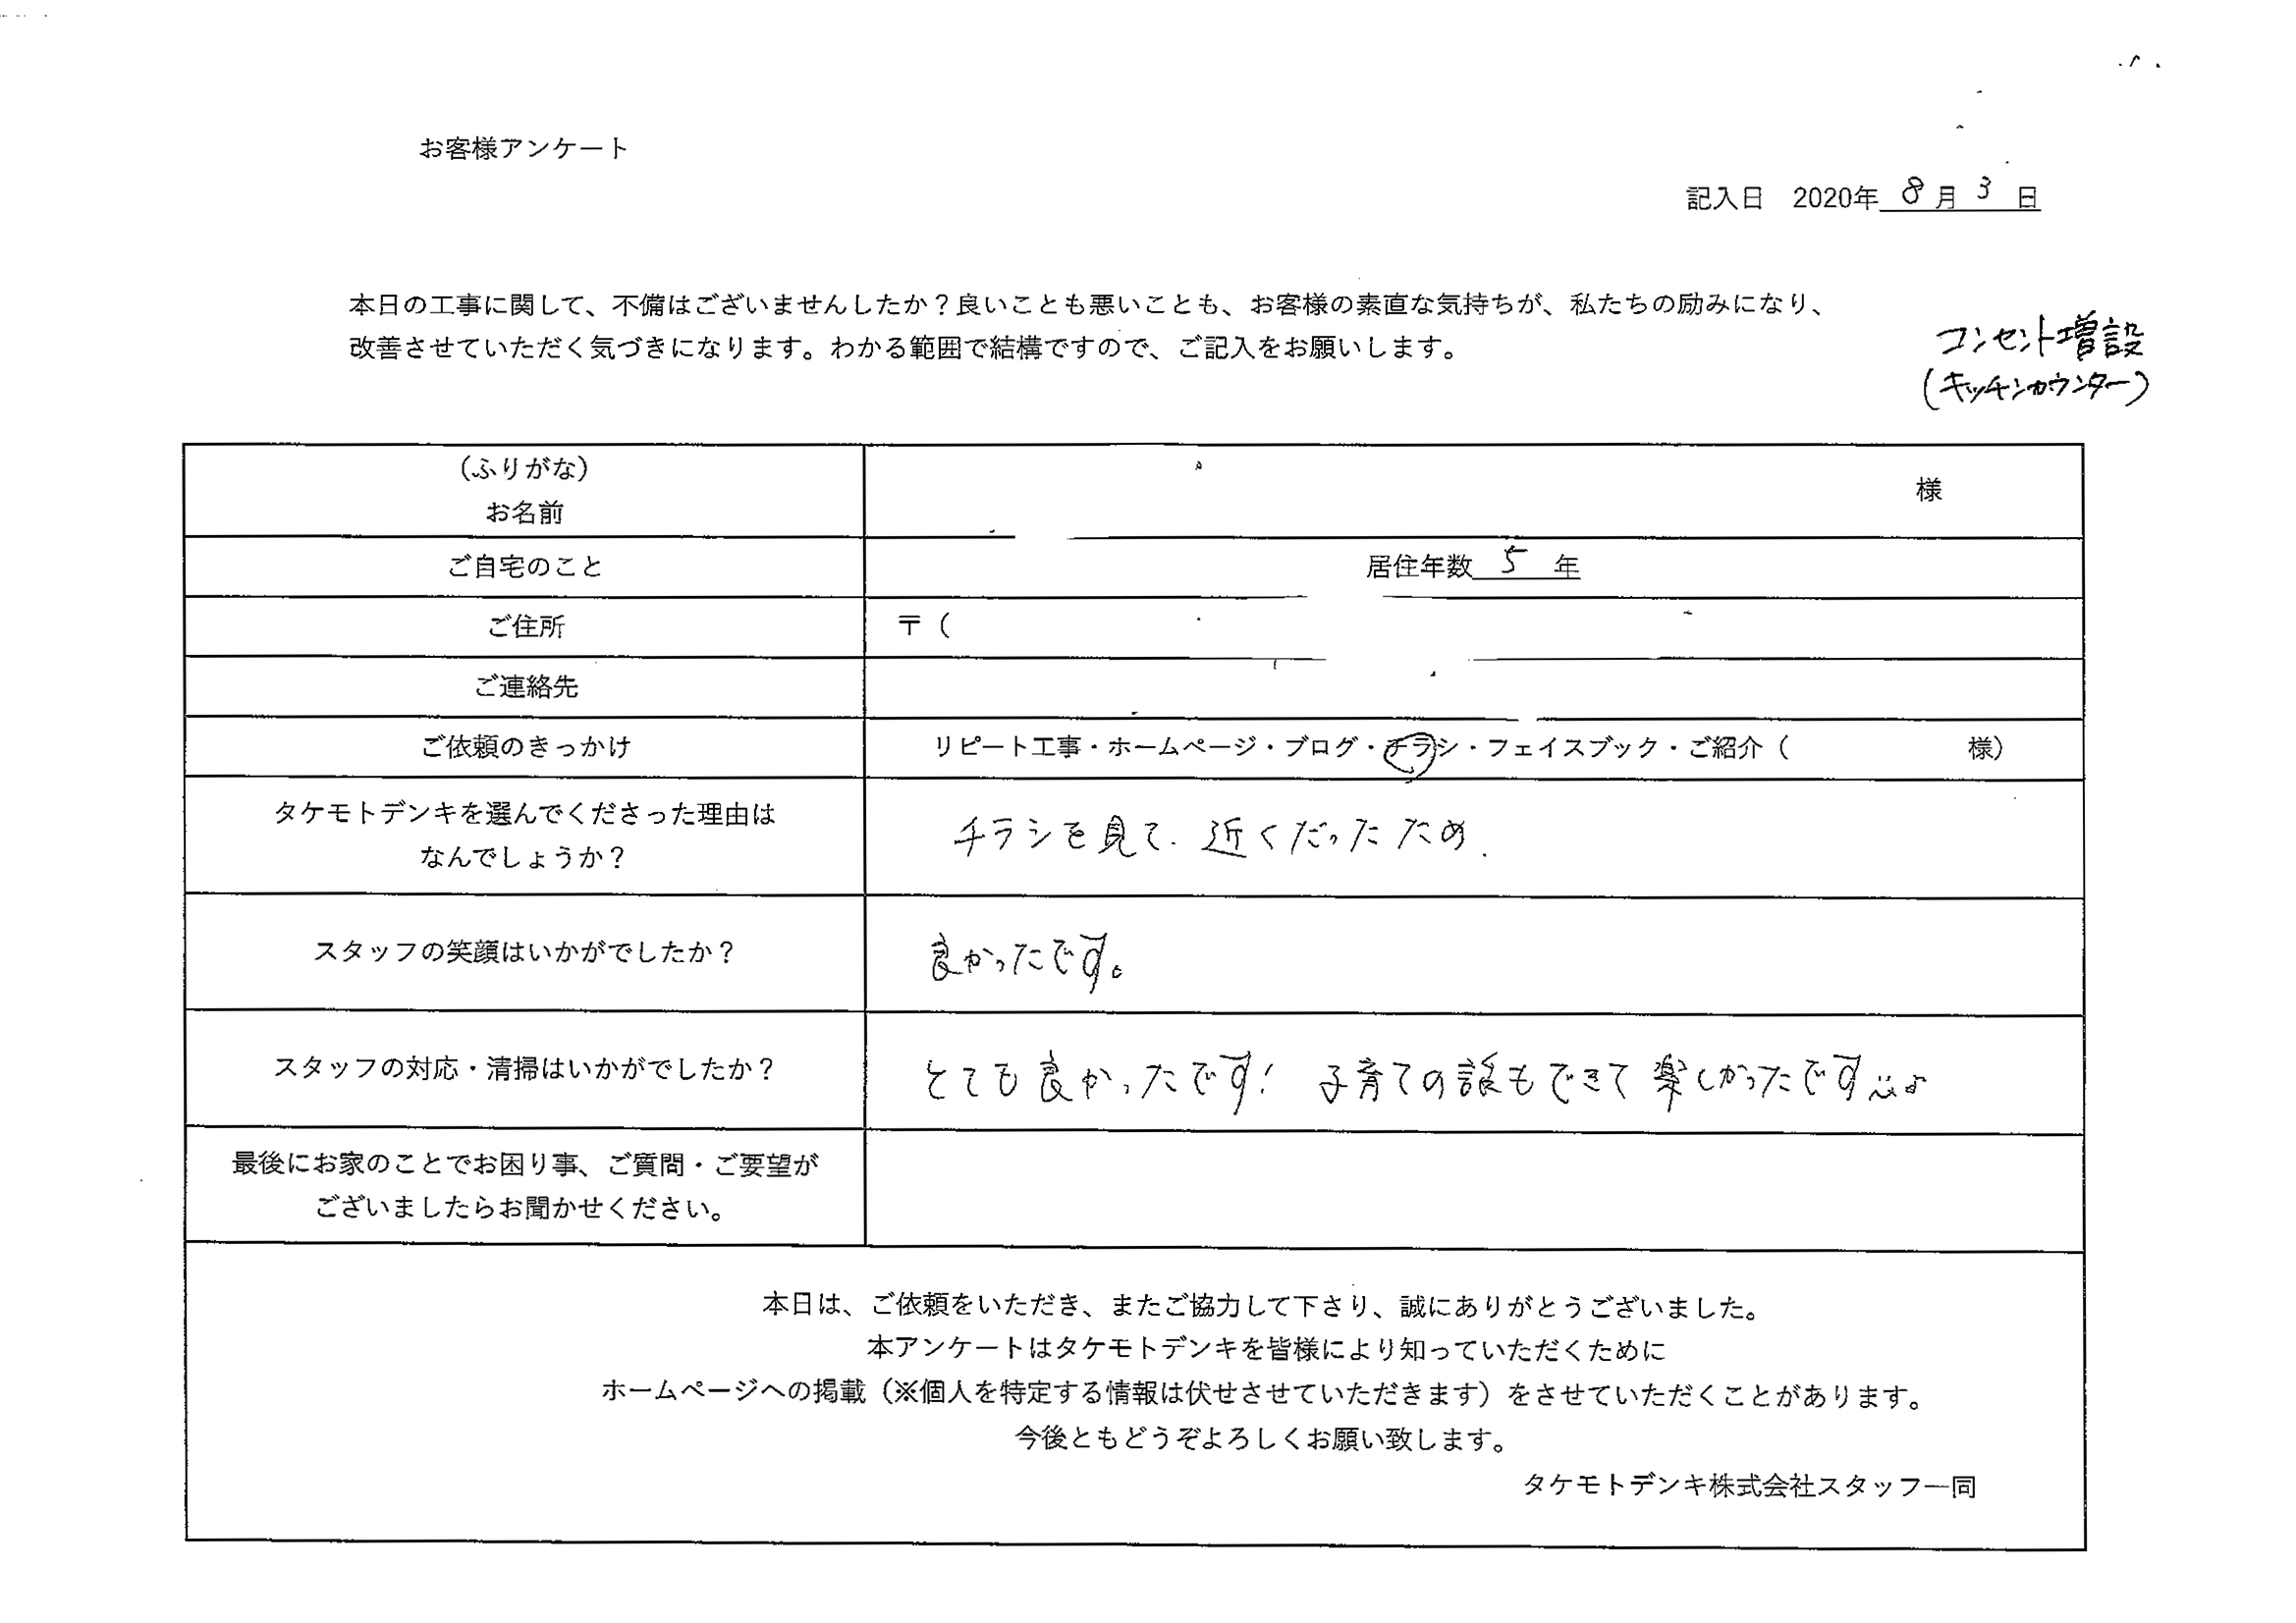 お客様アンケート
記入日 2020年 8月 3日
本日の工事に関して、不備はございませんしたか？良いことも悪いことも、お客様の素直な気持ちが、私たちの励みになり、
改善させていただく気づきになります。わかる範囲で結構ですので、ご記入をお願いします。
コンセント増設
（キッチンカウンター）
（ふりがな）
お名前
様
ご自宅のこと
居住年数 5 年
ご住所
〒（
ご連絡先
ご依頼のきっかけ
リピート工事・ホームページ・ブログ・チラシ・フェイスブック・ご紹介（ 様）
タケモトデンキを選んでくださった理由は
なんでしょうか？
チラシを見て、近くだったため.
スタッフの笑顔はいかがでしたか？
良かったです。
スタッフの対応・清掃はいかがでしたか？
とても良かったです！ 子育ての話もできて楽しかったです♪
最後にお家のことでお困り事、ご質問・ご要望が
ございましたらお聞かせください。
本日は、ご依頼をいただき、またご協力して下さり、誠にありがとうございました。
本アンケートはタケモトデンキを皆様により知っていただくために
ホームページへの掲載（※個人を特定する情報は伏せさせていただきます）をさせていただくことがあります。
今後ともどうぞよろしくお願い致します。
タケモトデンキ株式会社スタッフ一同